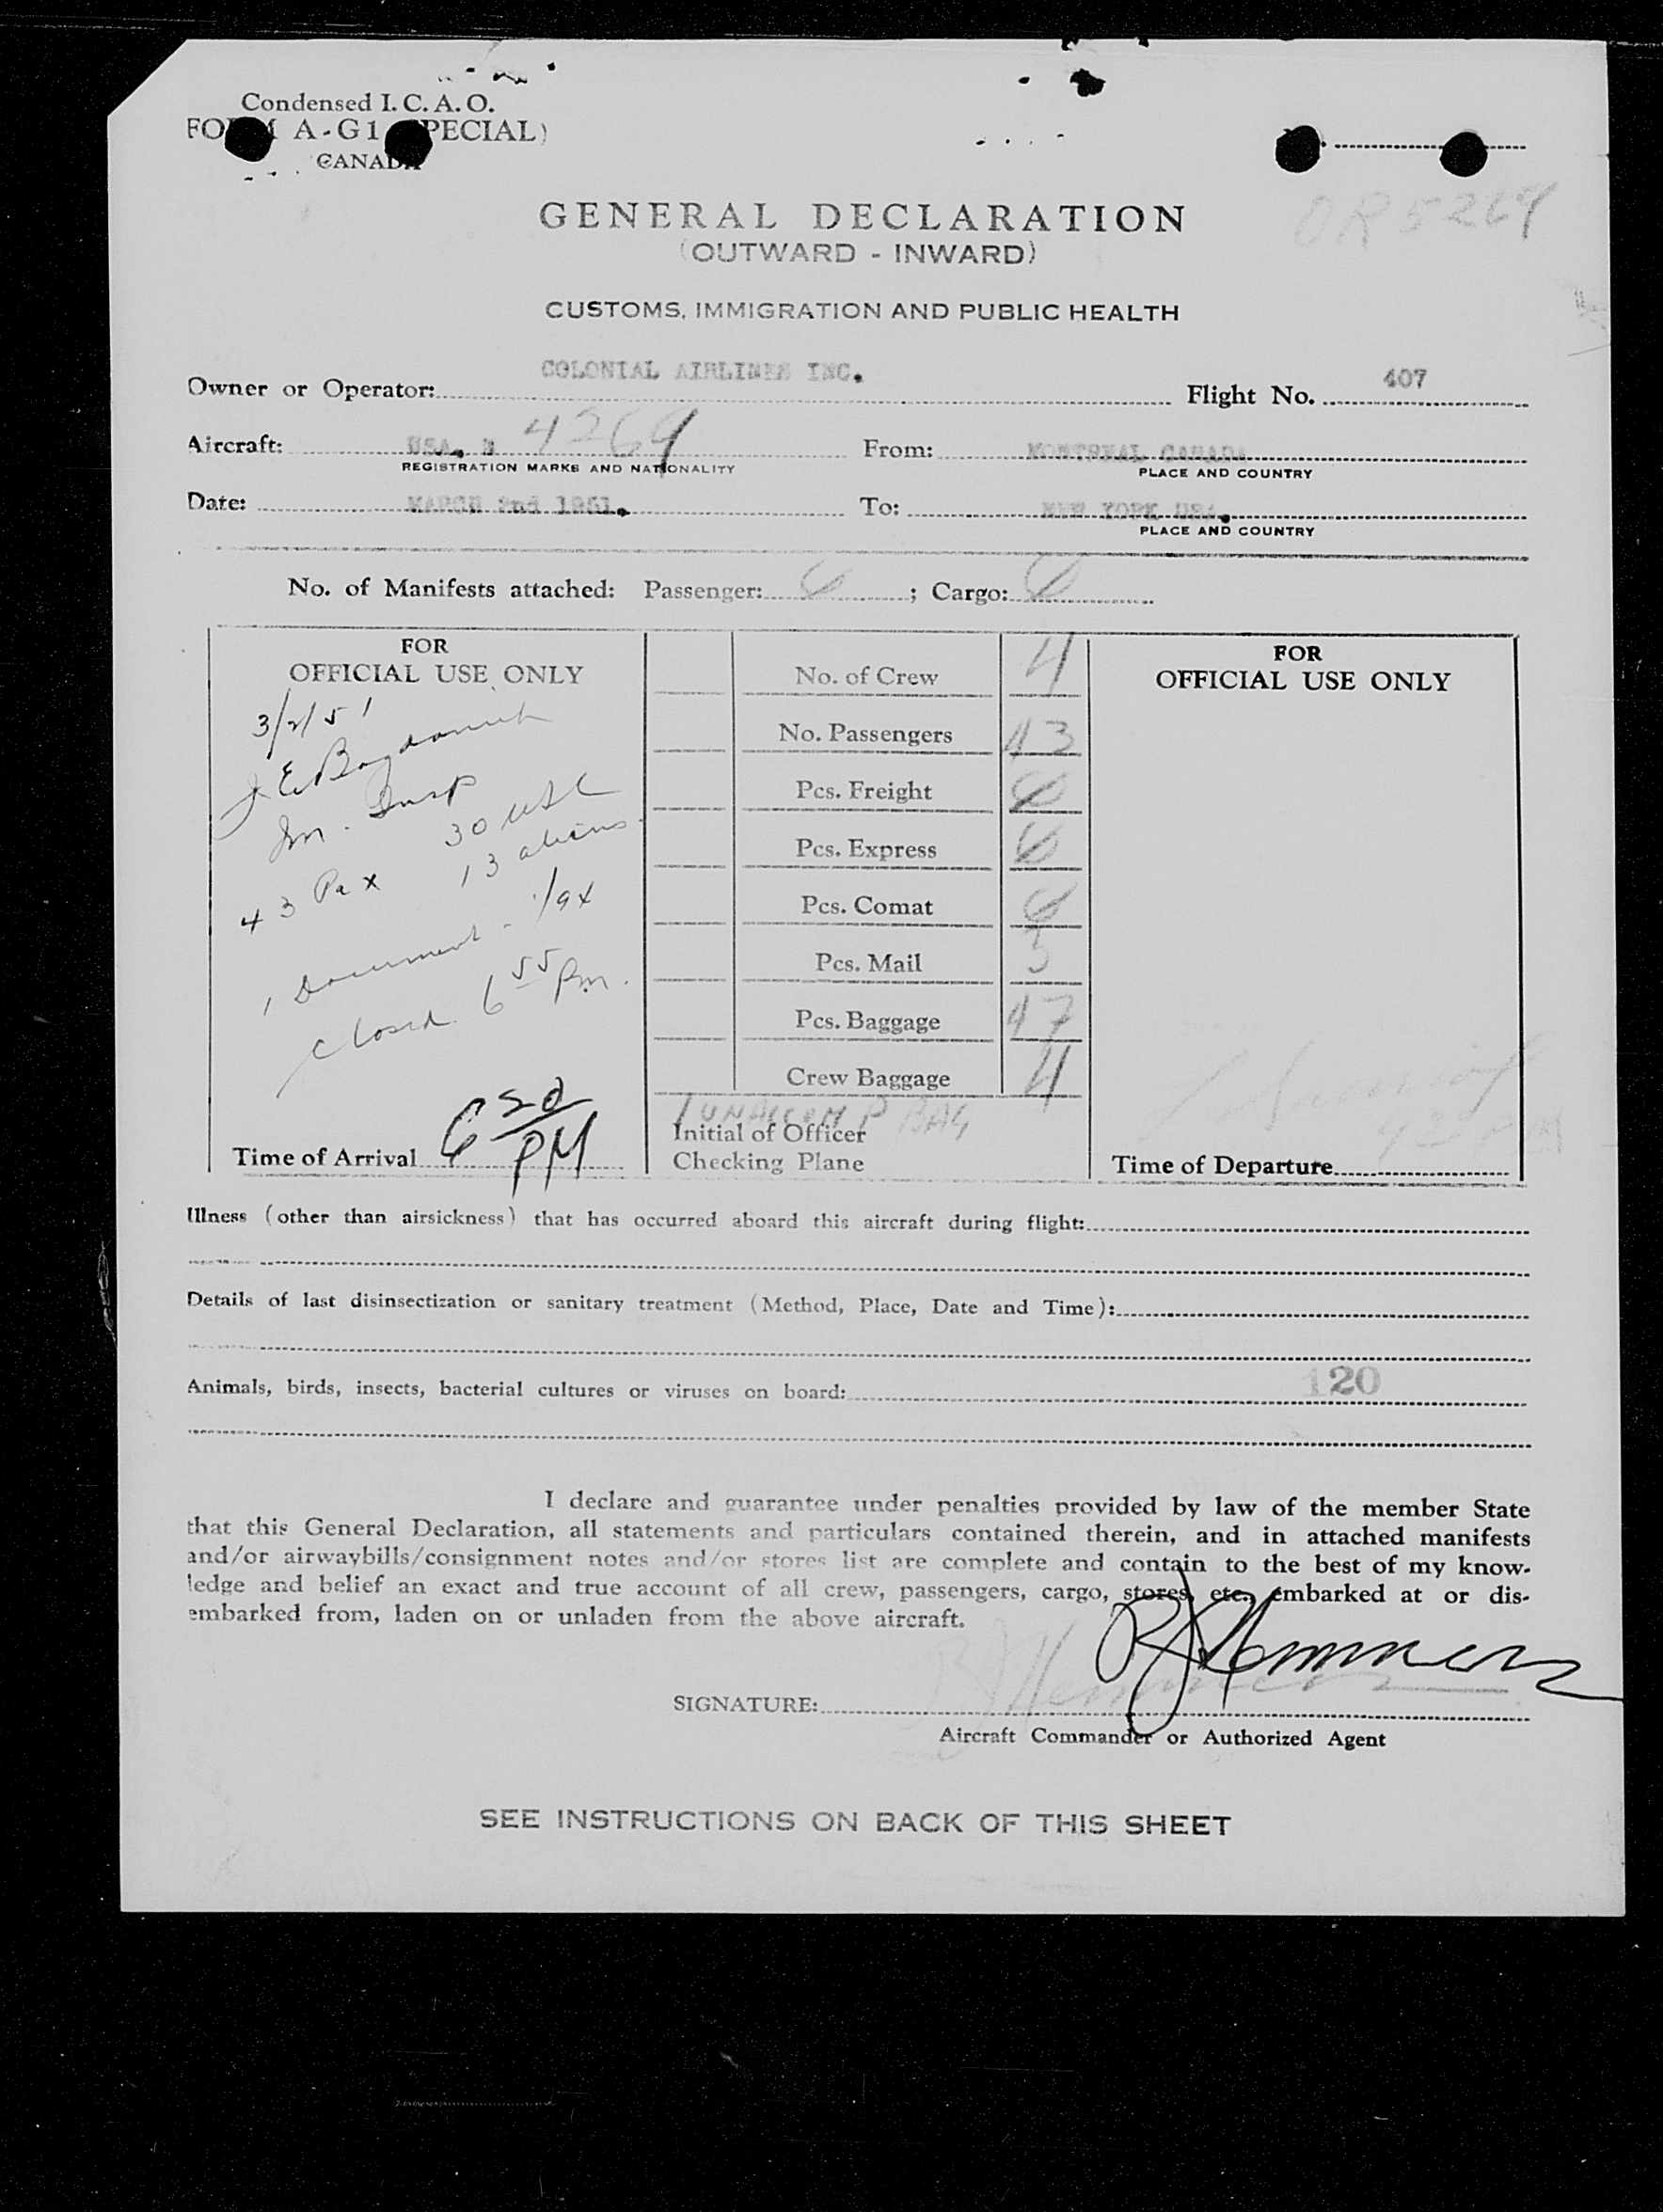 Condensed I. C. A. O.
FORM A-G1 (SPECIAL)
CANADA
OR 5269
GENERAL DECLARATION
(OUTWARD - INWARD)
CUSTOMS, IMMIGRATION AND PUBLIC HEALTH
Owner or Operator: COLONIAL AIRLINES INC. Flight No. 407
Aircraft: USA. N 4269 From: MONTREAL CANADA
REGISTRATION MARKS AND NATIONALITY PLACE AND COUNTRY
Date: MARCH 2nd 1951. To: NEW YORK USA.
PLACE AND COUNTRY
No. of Manifests attached: Passenger: ; Cargo:
FOR
OFFICIAL USE ONLY
3/2/51
Im. Insp
43 Pax 30 USC
13 aliens
1 Document - 1/9x
Closed 6 55 Pm.
Time of Arrival 6 50 PM
No. of Crew 4
No. Passengers 43
Pcs. Freight
Pcs. Express
Pcs. Comat
Pcs. Mail 3
Pcs. Baggage 47
Crew Baggage 4
1 UNACCOMP BAG
Initial of Officer
Checking Plane
FOR
OFFICIAL USE ONLY
Time of Departure
Illness (other than airsickness) that has occurred aboard this aircraft during flight:
Details of last disinsectization or sanitary treatment (Method, Place, Date and Time):
Animals, birds, insects, bacterial cultures or viruses on board: 120
I declare and guarantee under penalties provided by law of the member State
that this General Declaration, all statements and particulars contained therein, and in attached manifests
and/or airwaybills/consignment notes and/or stores list are complete and contain to the best of my know-
ledge and belief an exact and true account of all crew, passengers, cargo, stores, etc., embarked at or dis-
embarked from, laden on or unladen from the above aircraft.
SIGNATURE: RJ Hemmers
Aircraft Commander or Authorized Agent
SEE INSTRUCTIONS ON BACK OF THIS SHEET